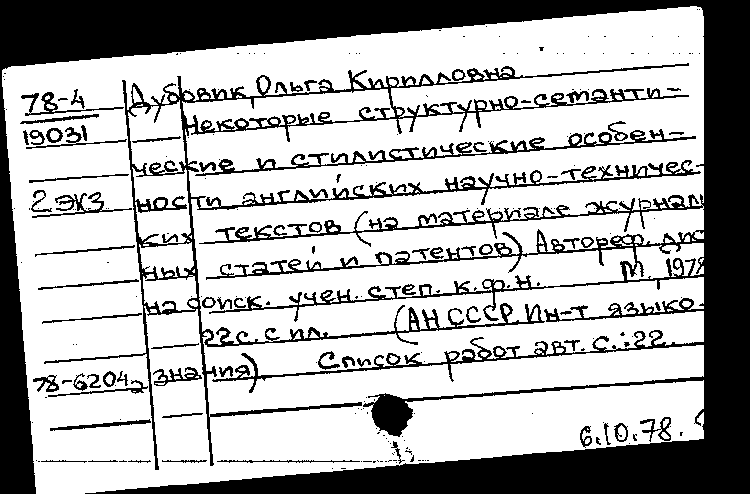 78-4 Дубовик, Ольга Кирилловна
19031 Некоторые структурно-семанти-
ческие и стилистические особен-
2 экз ности английских научно-техничес-
ких текстов (на материале журнал
ных статей и патентов). Автореф. дис
на соиск. учен. степ. к.ф.н. М., 1978
22с. с ил. (АН СССР. Ин-т языко-
78-6204 знания). Список работ авт. с.:22.
6.10.78.